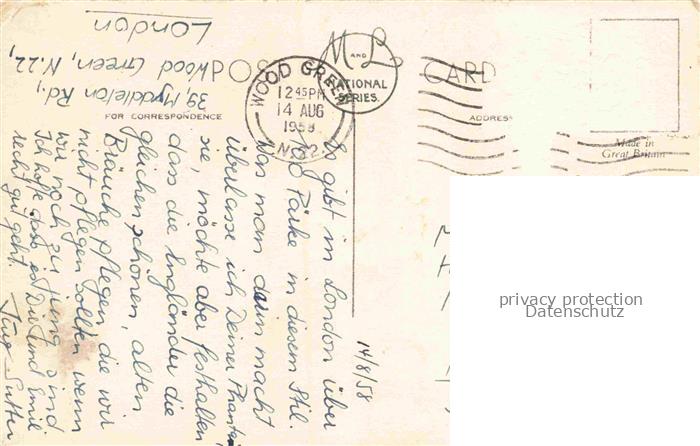 39, Myddleton Rd.,
Wood Green, N.22,
London
M & L
AND
NATIONAL
SERIES.
CARD
FOR CORRESPONDENCE
ADDRESS
Made in
Great Britain
WOOD GREEN
12 45 PM
14 AUG
1958
N.22
14/8/58
Es gibt in London über
Parke in diesem Stil.
Was man darin macht
überlasse ich Deiner Phantasie
sie, möchte aber festhalten,
dass die Engländer die
gleichen schönen, alten
Bräuche pflegen, die wir
nicht pflegen sollten wenn
wir noch zu jung sind
Ich hoffe dass es Dir und Emil
recht gut geht.
Jürg Sutter
privacy protection
Datenschutz